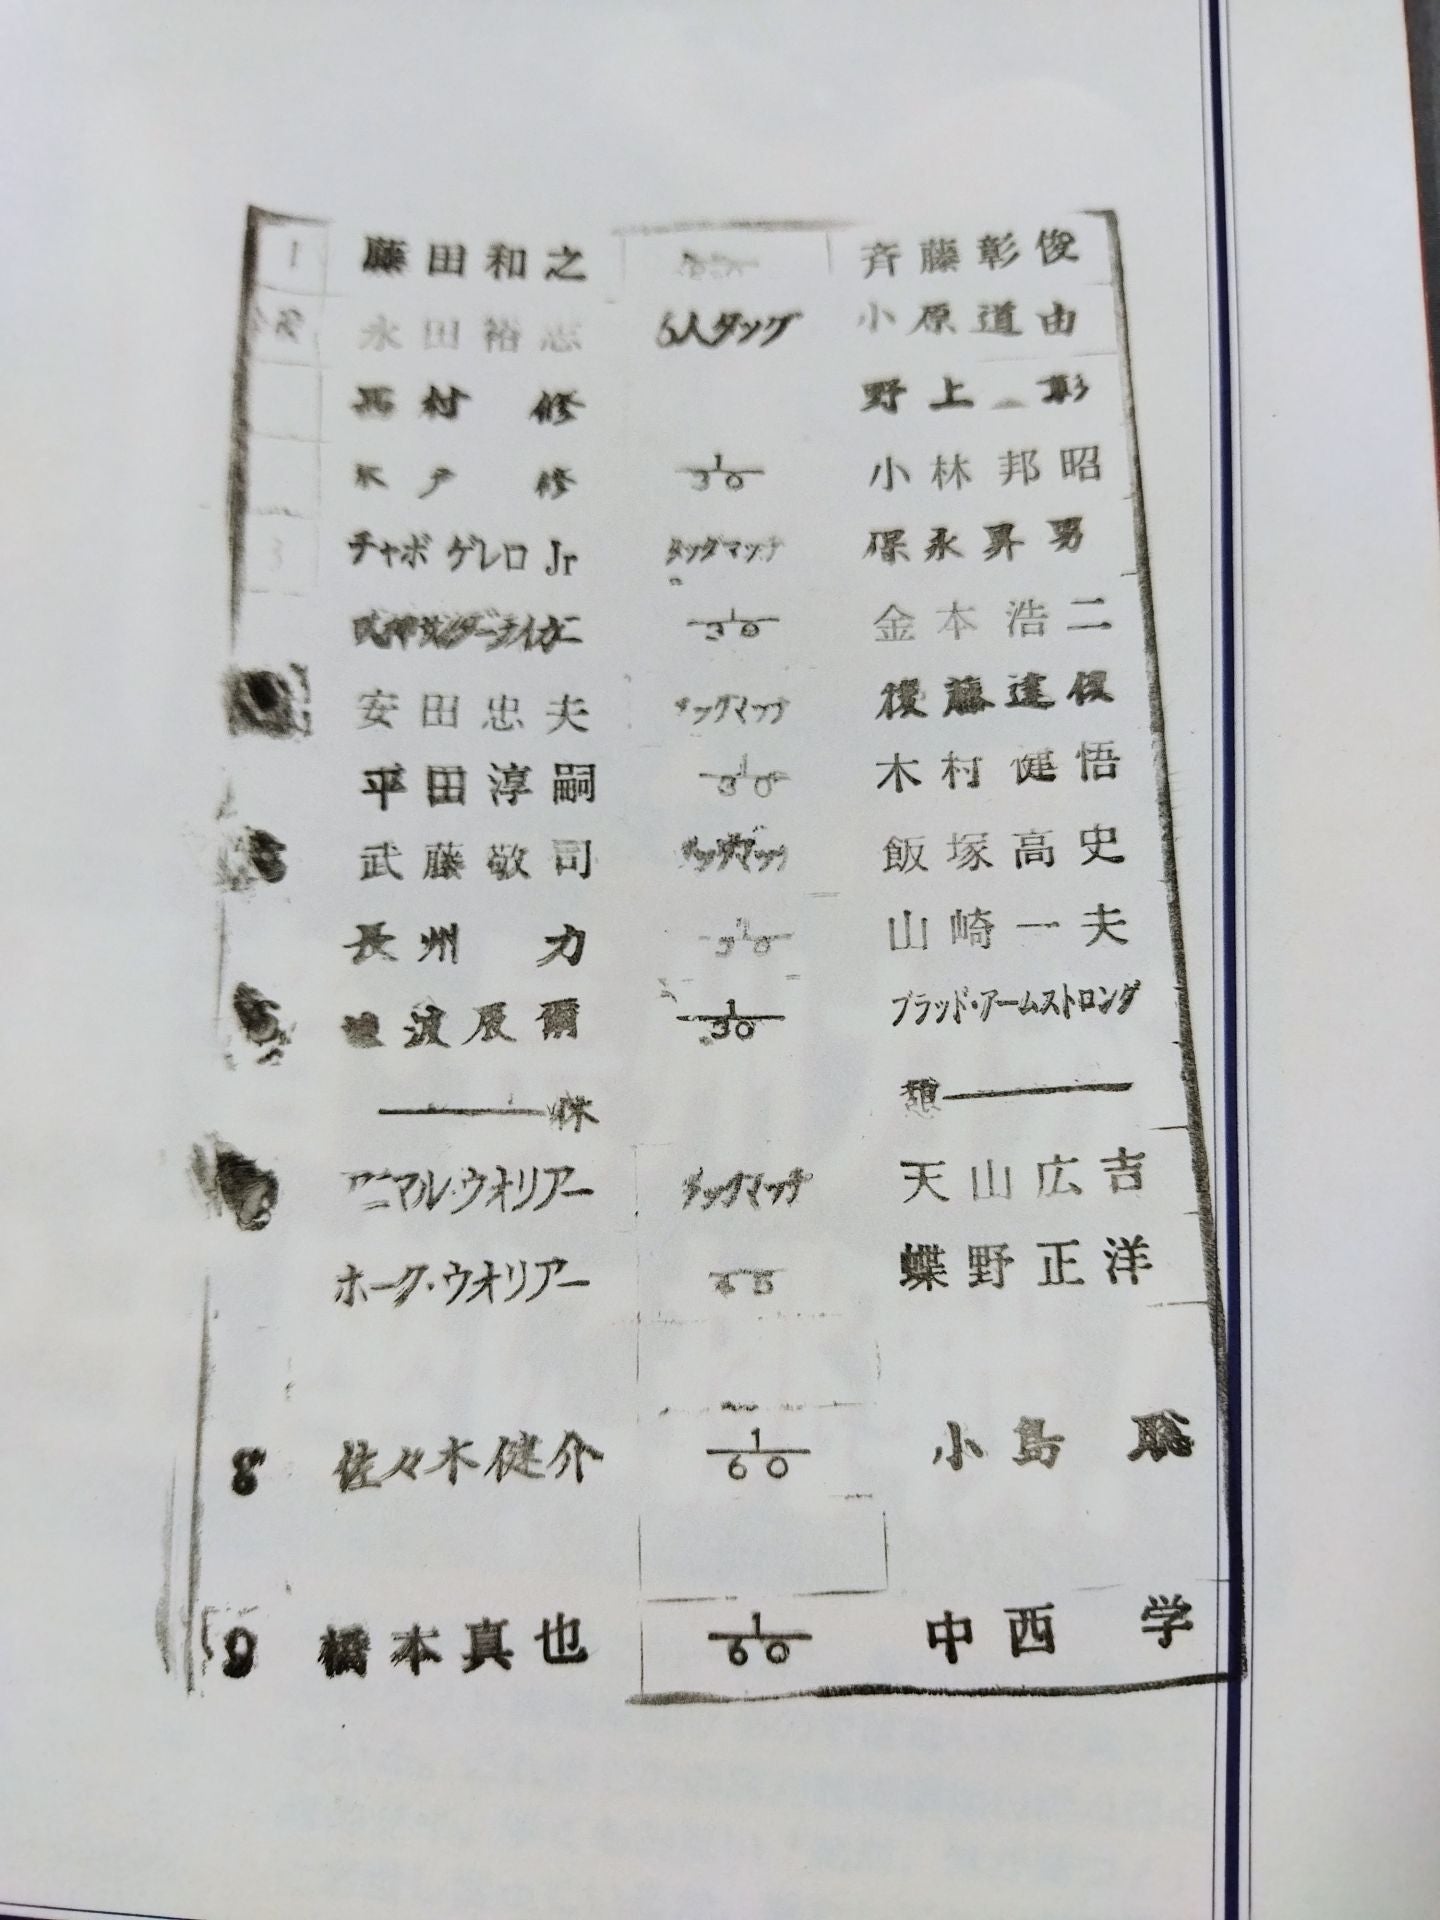 1 藤田和之 斉藤彰俊
永田裕志 6人タッグ 小原道由
西村修 野上彰
木戸修 1/30 小林邦昭
3 チャボゲレロJr タッグマッチ 保永昇男
1/30 金本浩二
安田忠夫 タッグマッチ 後藤達俊
平田淳嗣 1/30 木村健悟
武藤敬司 タッグマッチ 飯塚高史
長州力 1/30 山崎一夫
藤波辰爾 1/30 ブラッド・アームストロング
休 憩
アニマル・ウオリアー タッグマッチ 天山広吉
ホーク・ウオリアー 蝶野正洋
8 佐々木健介 1/60 小島聡
9 橋本真也 1/60 中西学